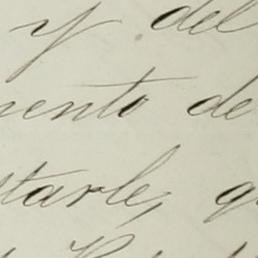 y del
mento de
starle, q